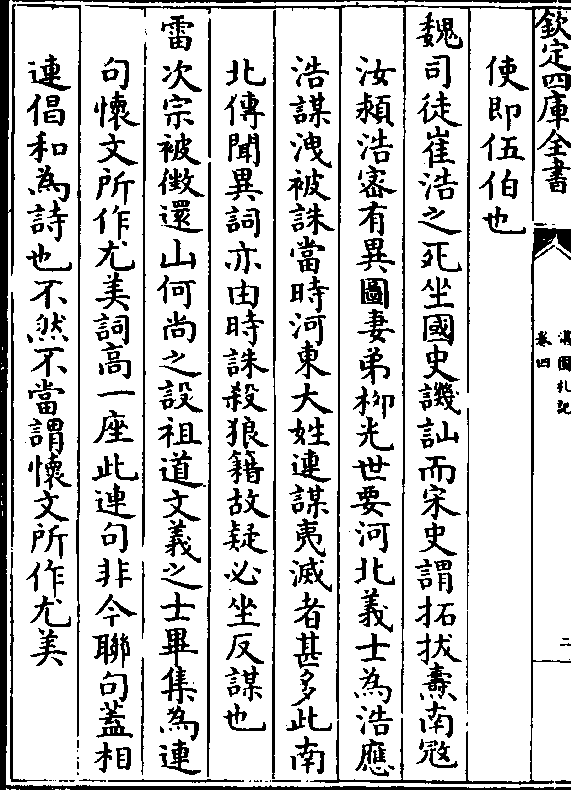 欽定四庫全書
溝園札記
卷四
二
使即伍伯也
魏司徒崔浩之死坐國史譏訕而宋史謂拓拔燾南㓂
汝潁浩審有異圖妻弟栁光世要河北義士為浩應
浩謀洩被誅當時河東大姓連謀夷滅者甚多此南
北傳聞異詞亦由時誅殺狼籍故疑必坐反謀也
雷次宗被徴還山何尚之設祖道文義之士畢集為連
句懷文所作尤美詞高一座此連句非今聯句蓋相
連倡和為詩也不然不當謂懷文所作尤美